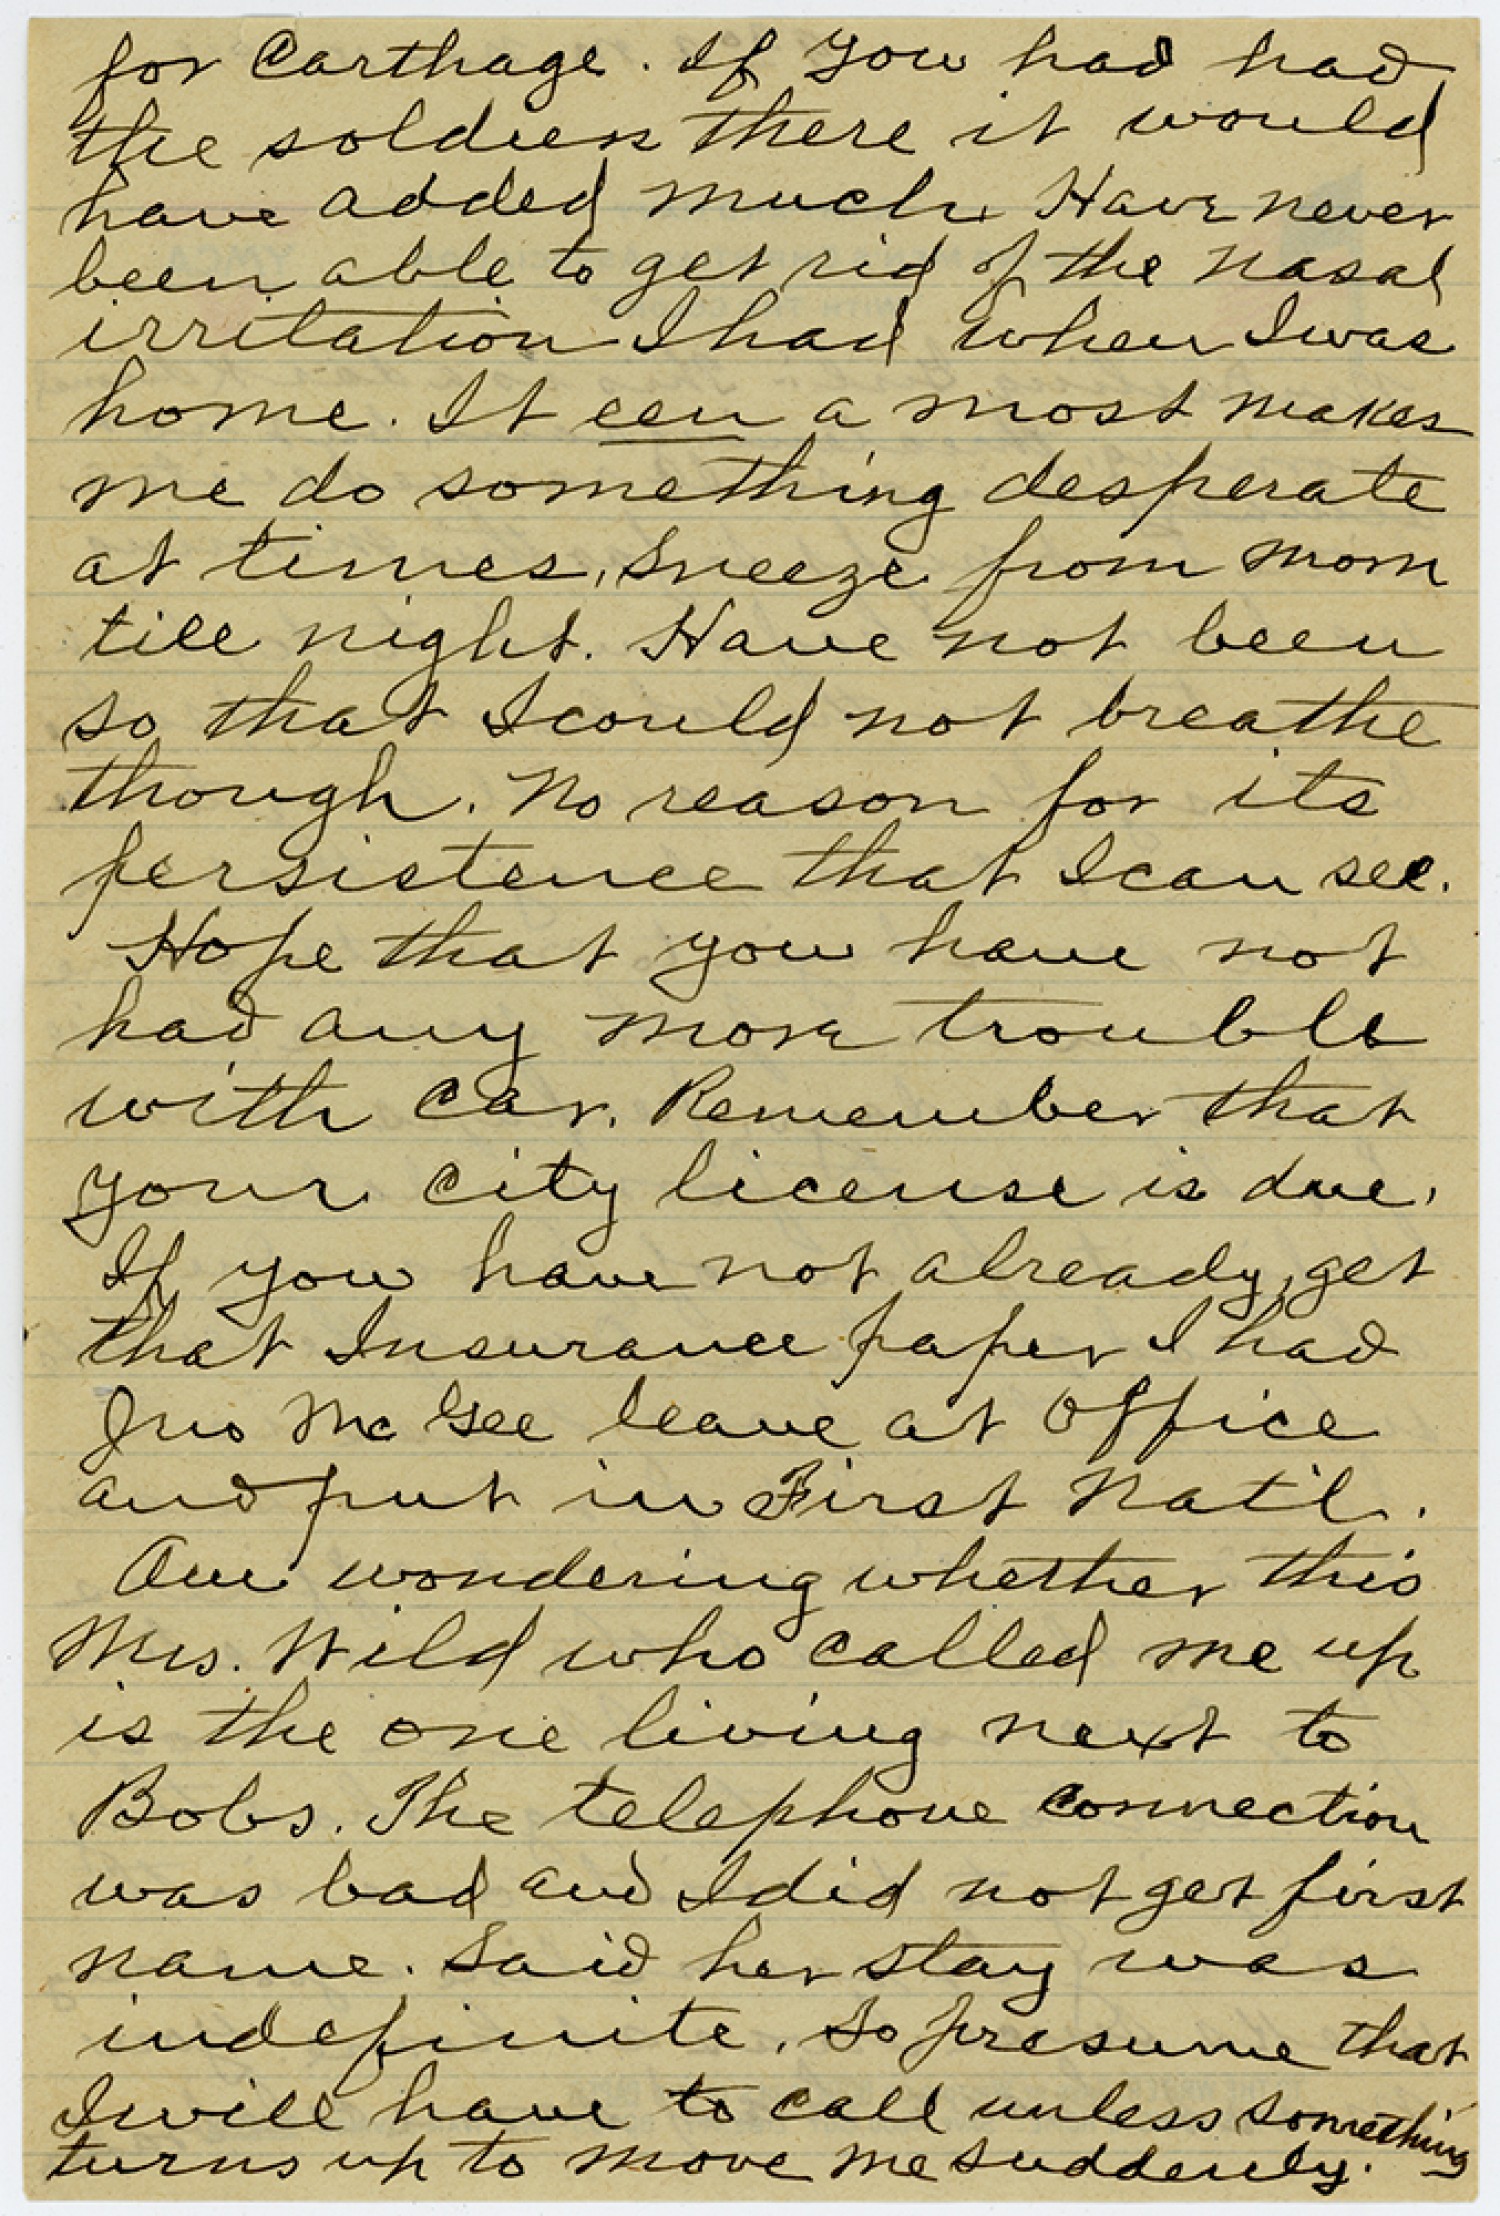 for Carthage. If you had had
the soldiers there it would
have added much. Have never
been able to get rid of the nasal
irritation I had when I was
home. It een a most makes
me do something desperate
at times. Sneeze from morn
till night. Have not been
so that I could not breathe
though. No reason for its
persistence that I can see.
Hope that you have not
had any more trouble
with car. Remember that
your city license is due.
If you have not already, get
that Insurance paper I had
Jno McGee leave at office
and put in First Nat'l.
Am wondering whether this
Mrs. Wild who called me up
is the one living next to
Bobs. The telephone connection
was bad and I did not get first
name. Said her stay was
indefinite. So presume that
I will have to call unless something
turns up to move me suddenly.